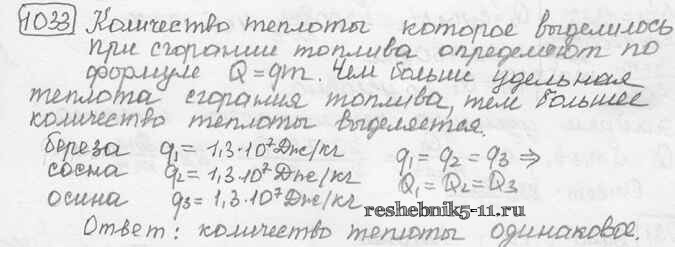 1033 Количество теплоты которое выделилось
при сгорании топлива определяют по
формуле Q = qm. Чем больше удельная
теплота сгорания топлива, тем большее
количество теплоты выделяется.
береза q₁ = 1,3·10⁷ Дж/кг
сосна q₂ = 1,3·10⁷ Дж/кг
осина q₃ = 1,3·10⁷ Дж/кг
q₁ = q₂ = q₃ ⇒
Q₁ = Q₂ = Q₃
reshebnik5-11.ru
Ответ: количество теплоты одинаковое.